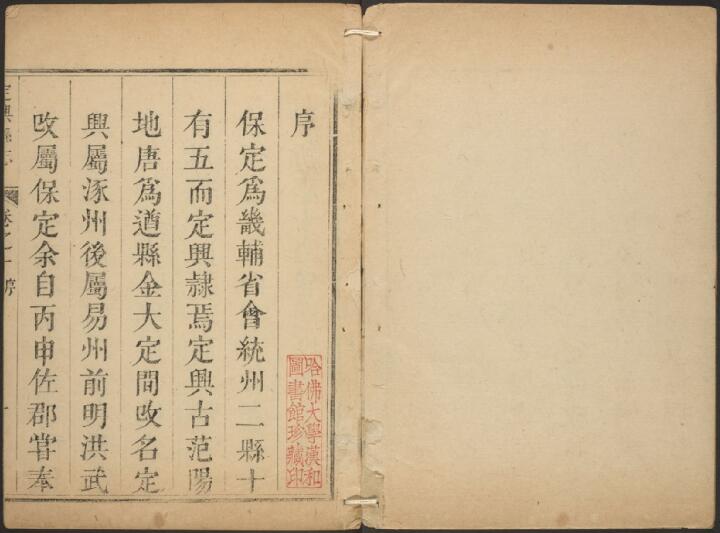 序
保定爲畿輔省會統州二縣十
有五而定興隷焉定興古范陽
地唐爲遒縣金大定間攺名定
興屬涿州後屬易州前明洪武
攺屬保定余自丙申佐郡嘗奉
定興縣志 卷之一 序 一
哈佛大學漢和
圖書館珍藏印